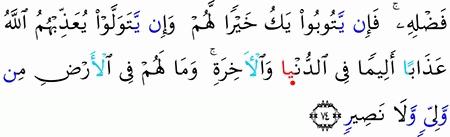 فَضْلِهِۦ ۚ فَإِن يَّتُوبُوا۟ يَكُ خَيْرًا لَّهُمْ ۖ وَإِن يَّتَوَلَّوْا۟ يُعَذِّبْهُمُ ٱللَّهُ
عَذَابًا أَلِيمًا فِى ٱلدُّنْيَا وَٱلْأَخِرَةِ ۚ وَمَا لَهُمْ فِى ٱلْأَرْضِ مِن
وَّلِىٍّ وَّلَا نَصِيرٍ ﴿٧٤﴾